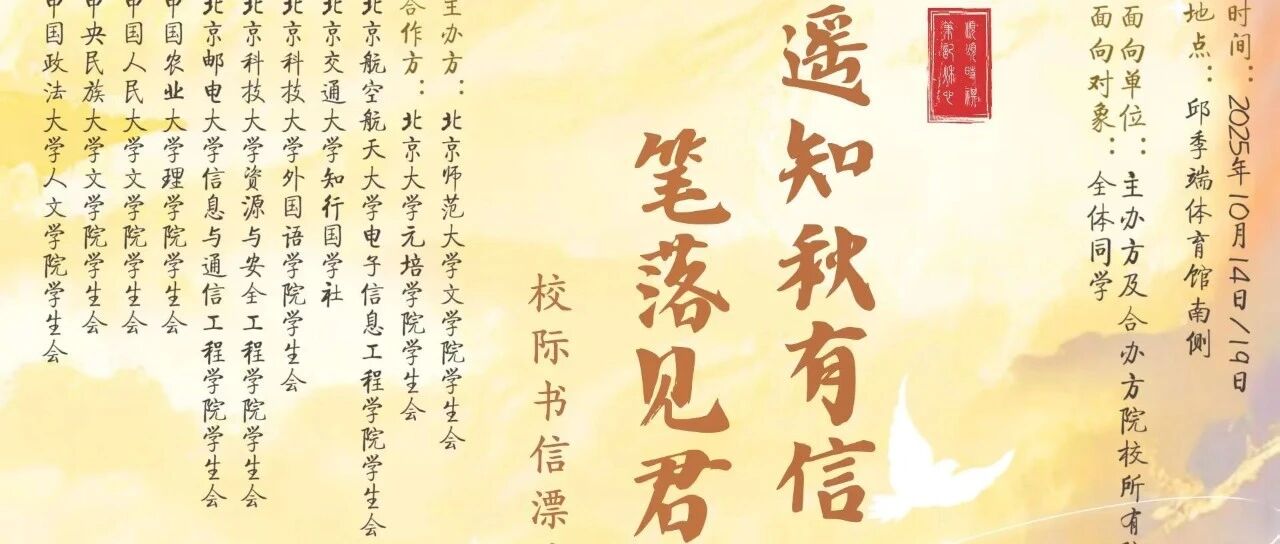 时间：2025年10月14日/19日
地点：邱季端体育馆南侧
面向单位：主办方及合办方院校所有
面向对象：全体同学
順頌時祺
遥知秋有信
笔落见君
校际书信漂
主办方：北京师范大学文学院学生会
合作方：北京大学元培学院学生会
北京航空航天大学电子信息工程学院学生会
北京交通大学知行国学社
北京科技大学外国语学院学生会
北京科技大学资源与安全工程学院学生会
北京邮电大学信息与通信工程学院学生会
中国农业大学理学院学生会
中国人民大学文学院学生会
中央民族大学文学院学生会
中国政法大学人文学院学生会